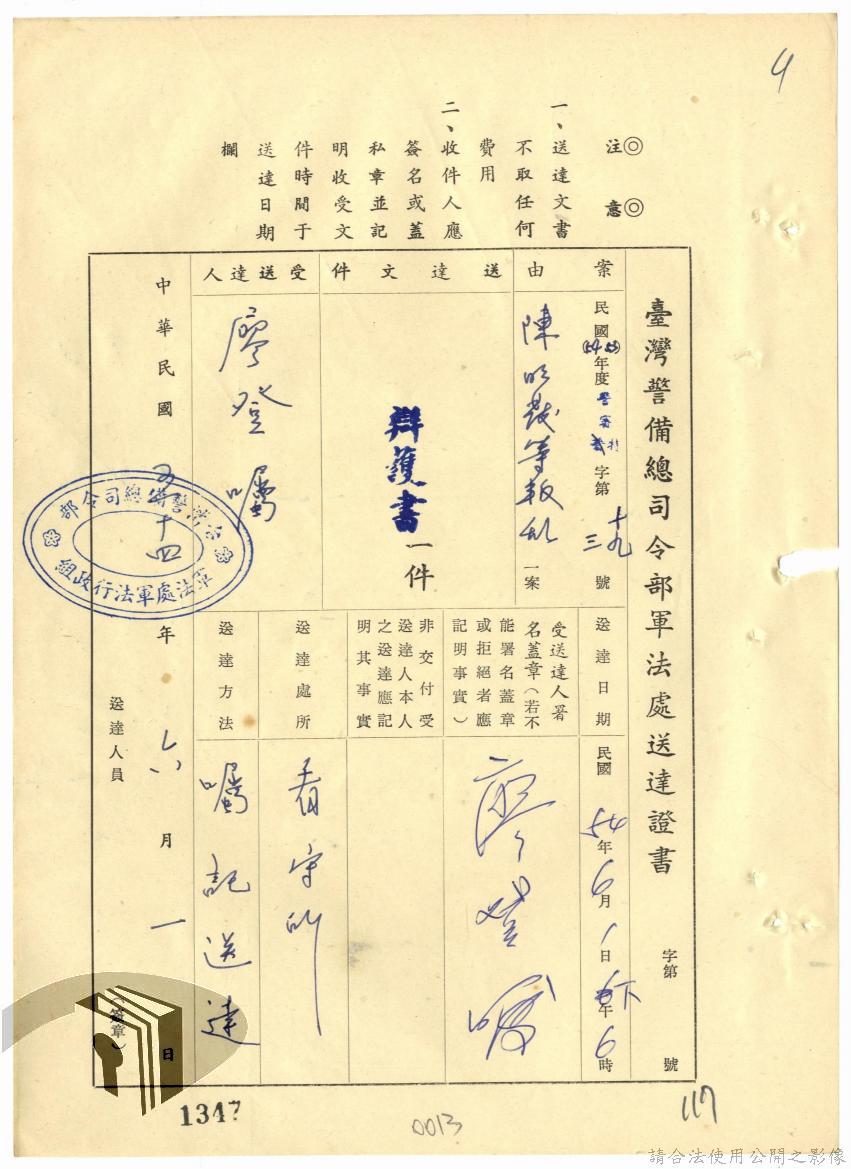 4
◎注 ◎意
一、送達文書
不取任何
費用
二、收件人應
簽名或蓋
私章並記
明收受文
件時間于
送達日期
欄
臺灣警備總司令部軍法處送達證書 字第 號
案由
民國(54 53)年度警審特字第 十九 三 號
陳 等叛乱 一案
送達文件
辯護書一件
受送達人
廖登囑
送達日期
民國54年6月1日下午6時
受送達人署
名蓋章(若不
能署名蓋章
或拒絕者應
記明事實)
廖登囑
非交付受
送達人本人
之送達應記
明其事實
送達處所
看守所
送達方法
囑託送達
中華民國五十四年六月一日
台灣警備總司令部
軍法處軍法行政組
送達人員 (簽章)
1347
0013
117
請合法使用公開之影像